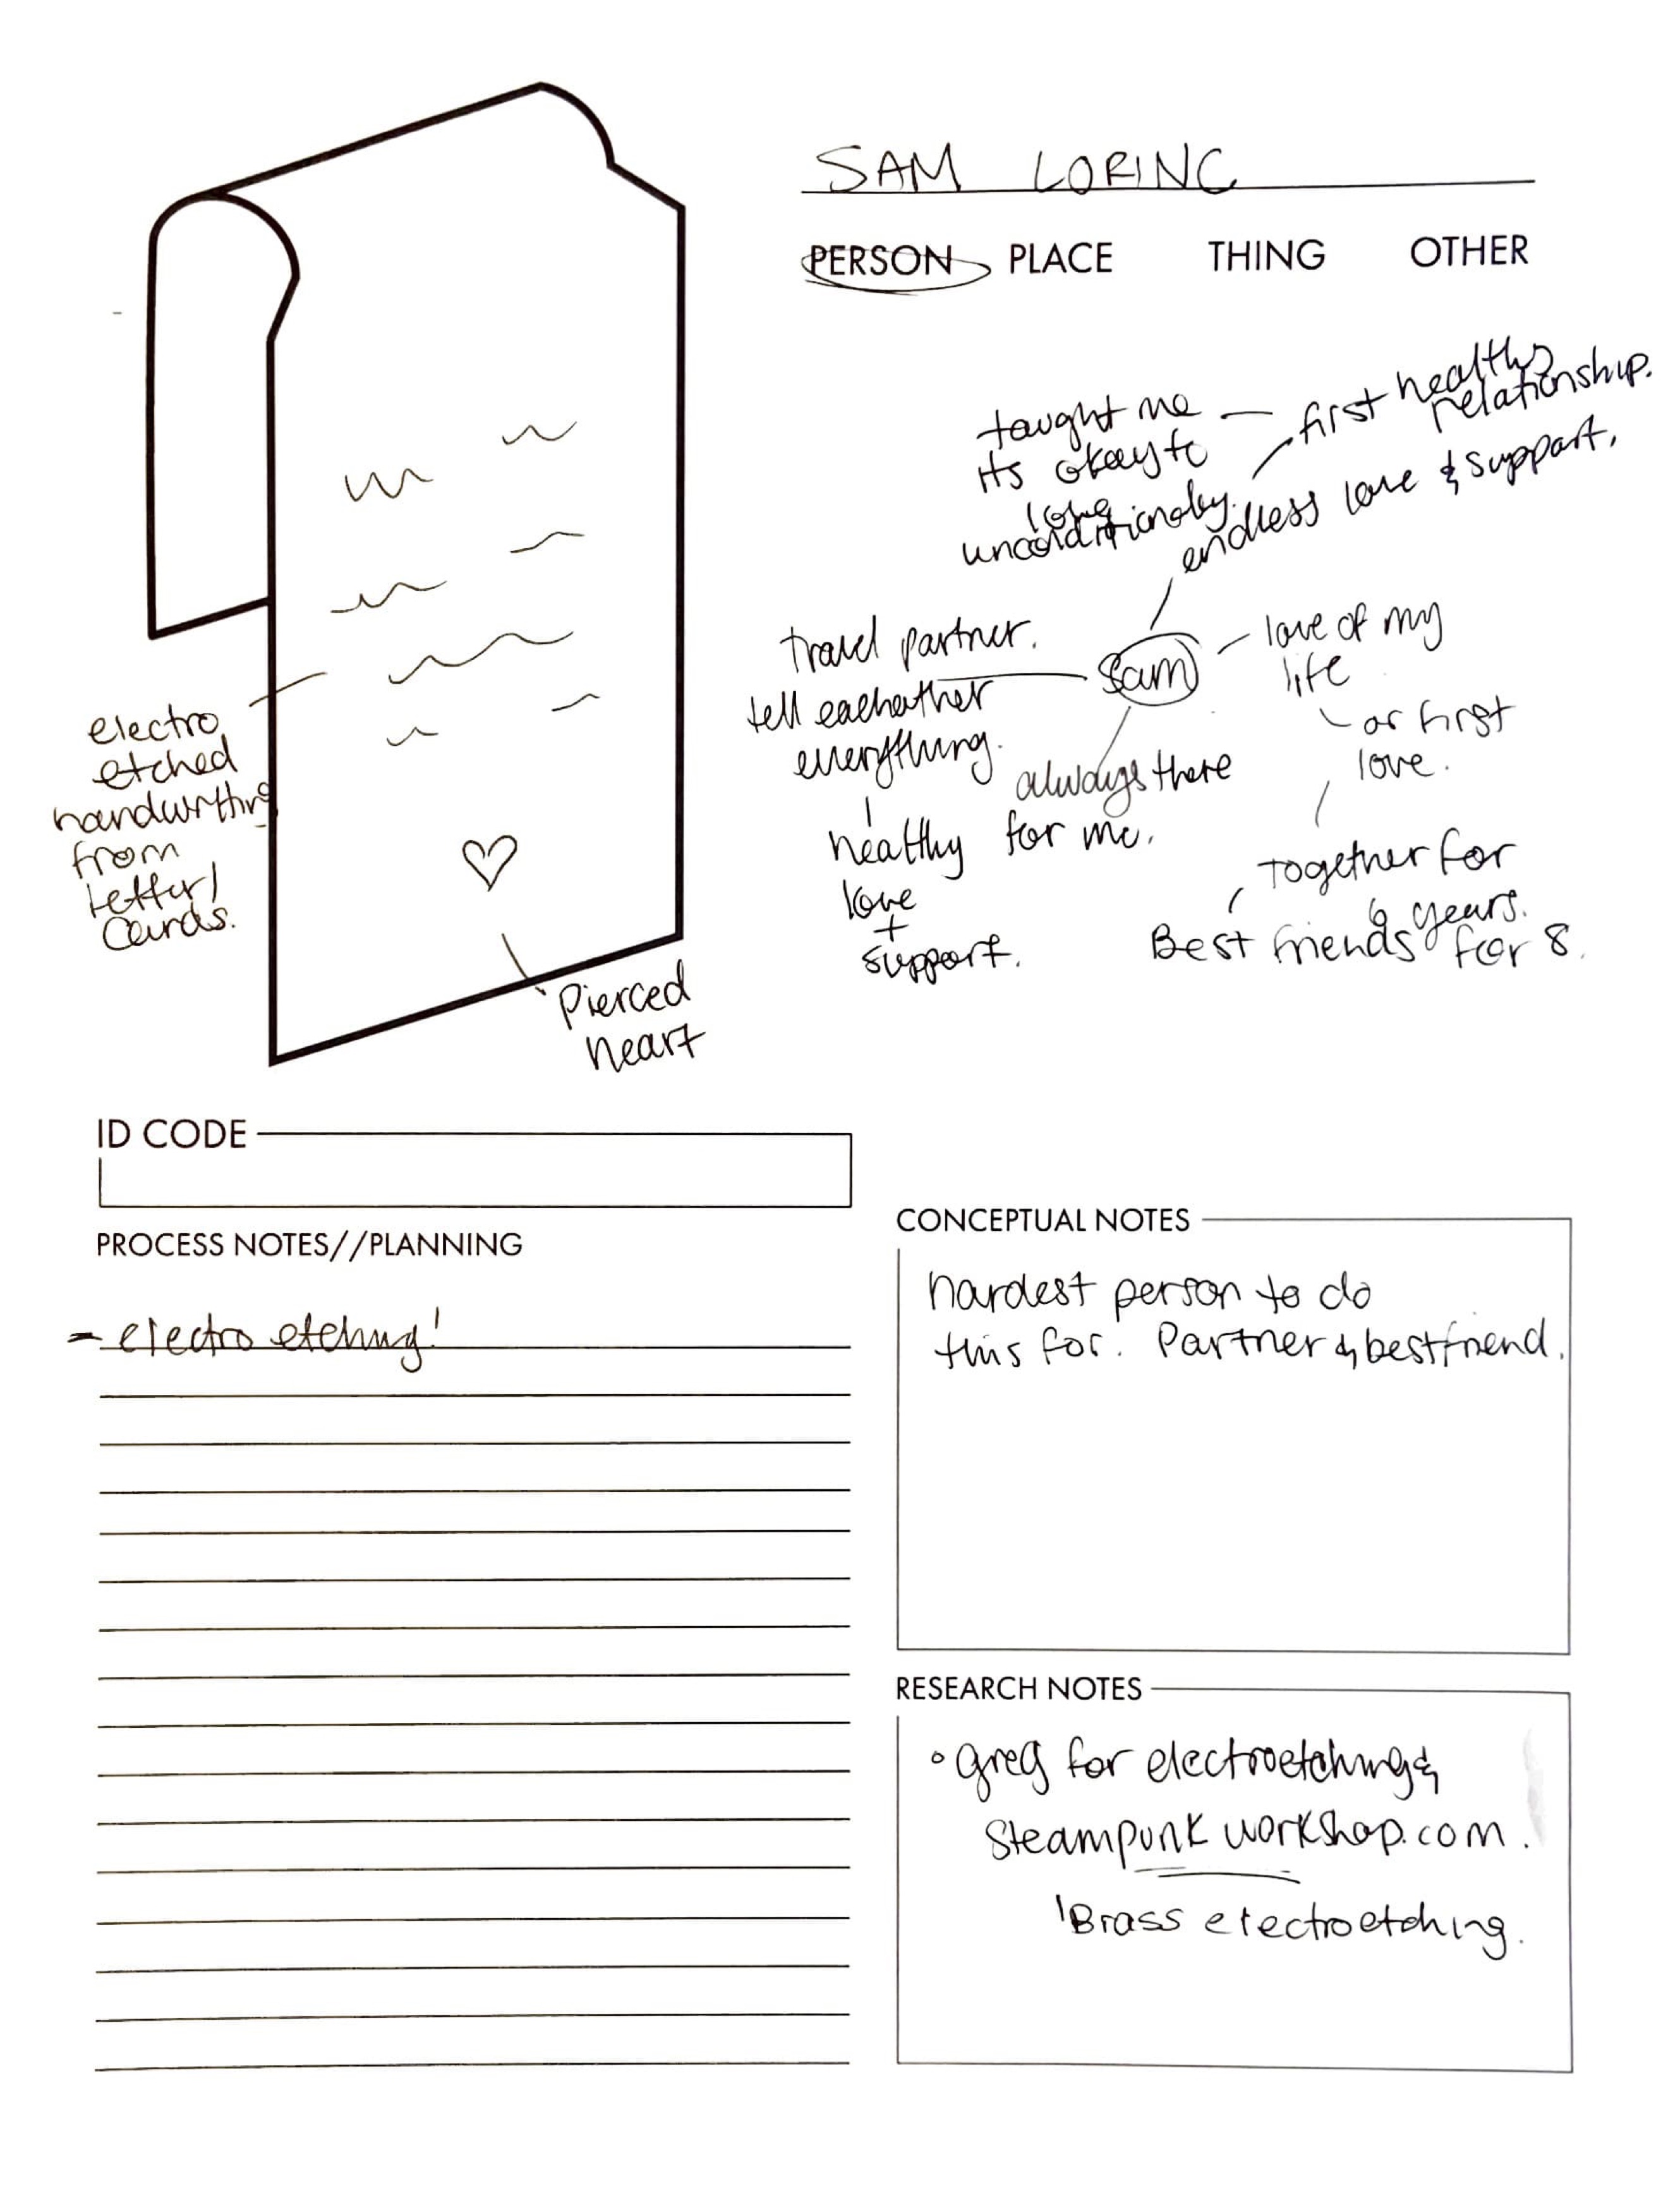 SAM LORINC
PERSON PLACE THING OTHER
taught me
its okay to
love
unconditionaly.
first healthy
relationship.
endless love & support.
travel partner.
tell eachother
everything.
healthy
love
+
support.
Sam
love of my
life
or first
love.
always there
for me.
Together for
6 years.
Best friends for 8.
electro
etched
handwrthng
from
letter/
cards.
Pierced
heart
ID CODE
PROCESS NOTES//PLANNING
- electro etching!
CONCEPTUAL NOTES
hardest person to do
this for. Partner & bestfriend.
RESEARCH NOTES
• Greg for electroetching &
Steampunk workshop.com.
Brass electroetching.